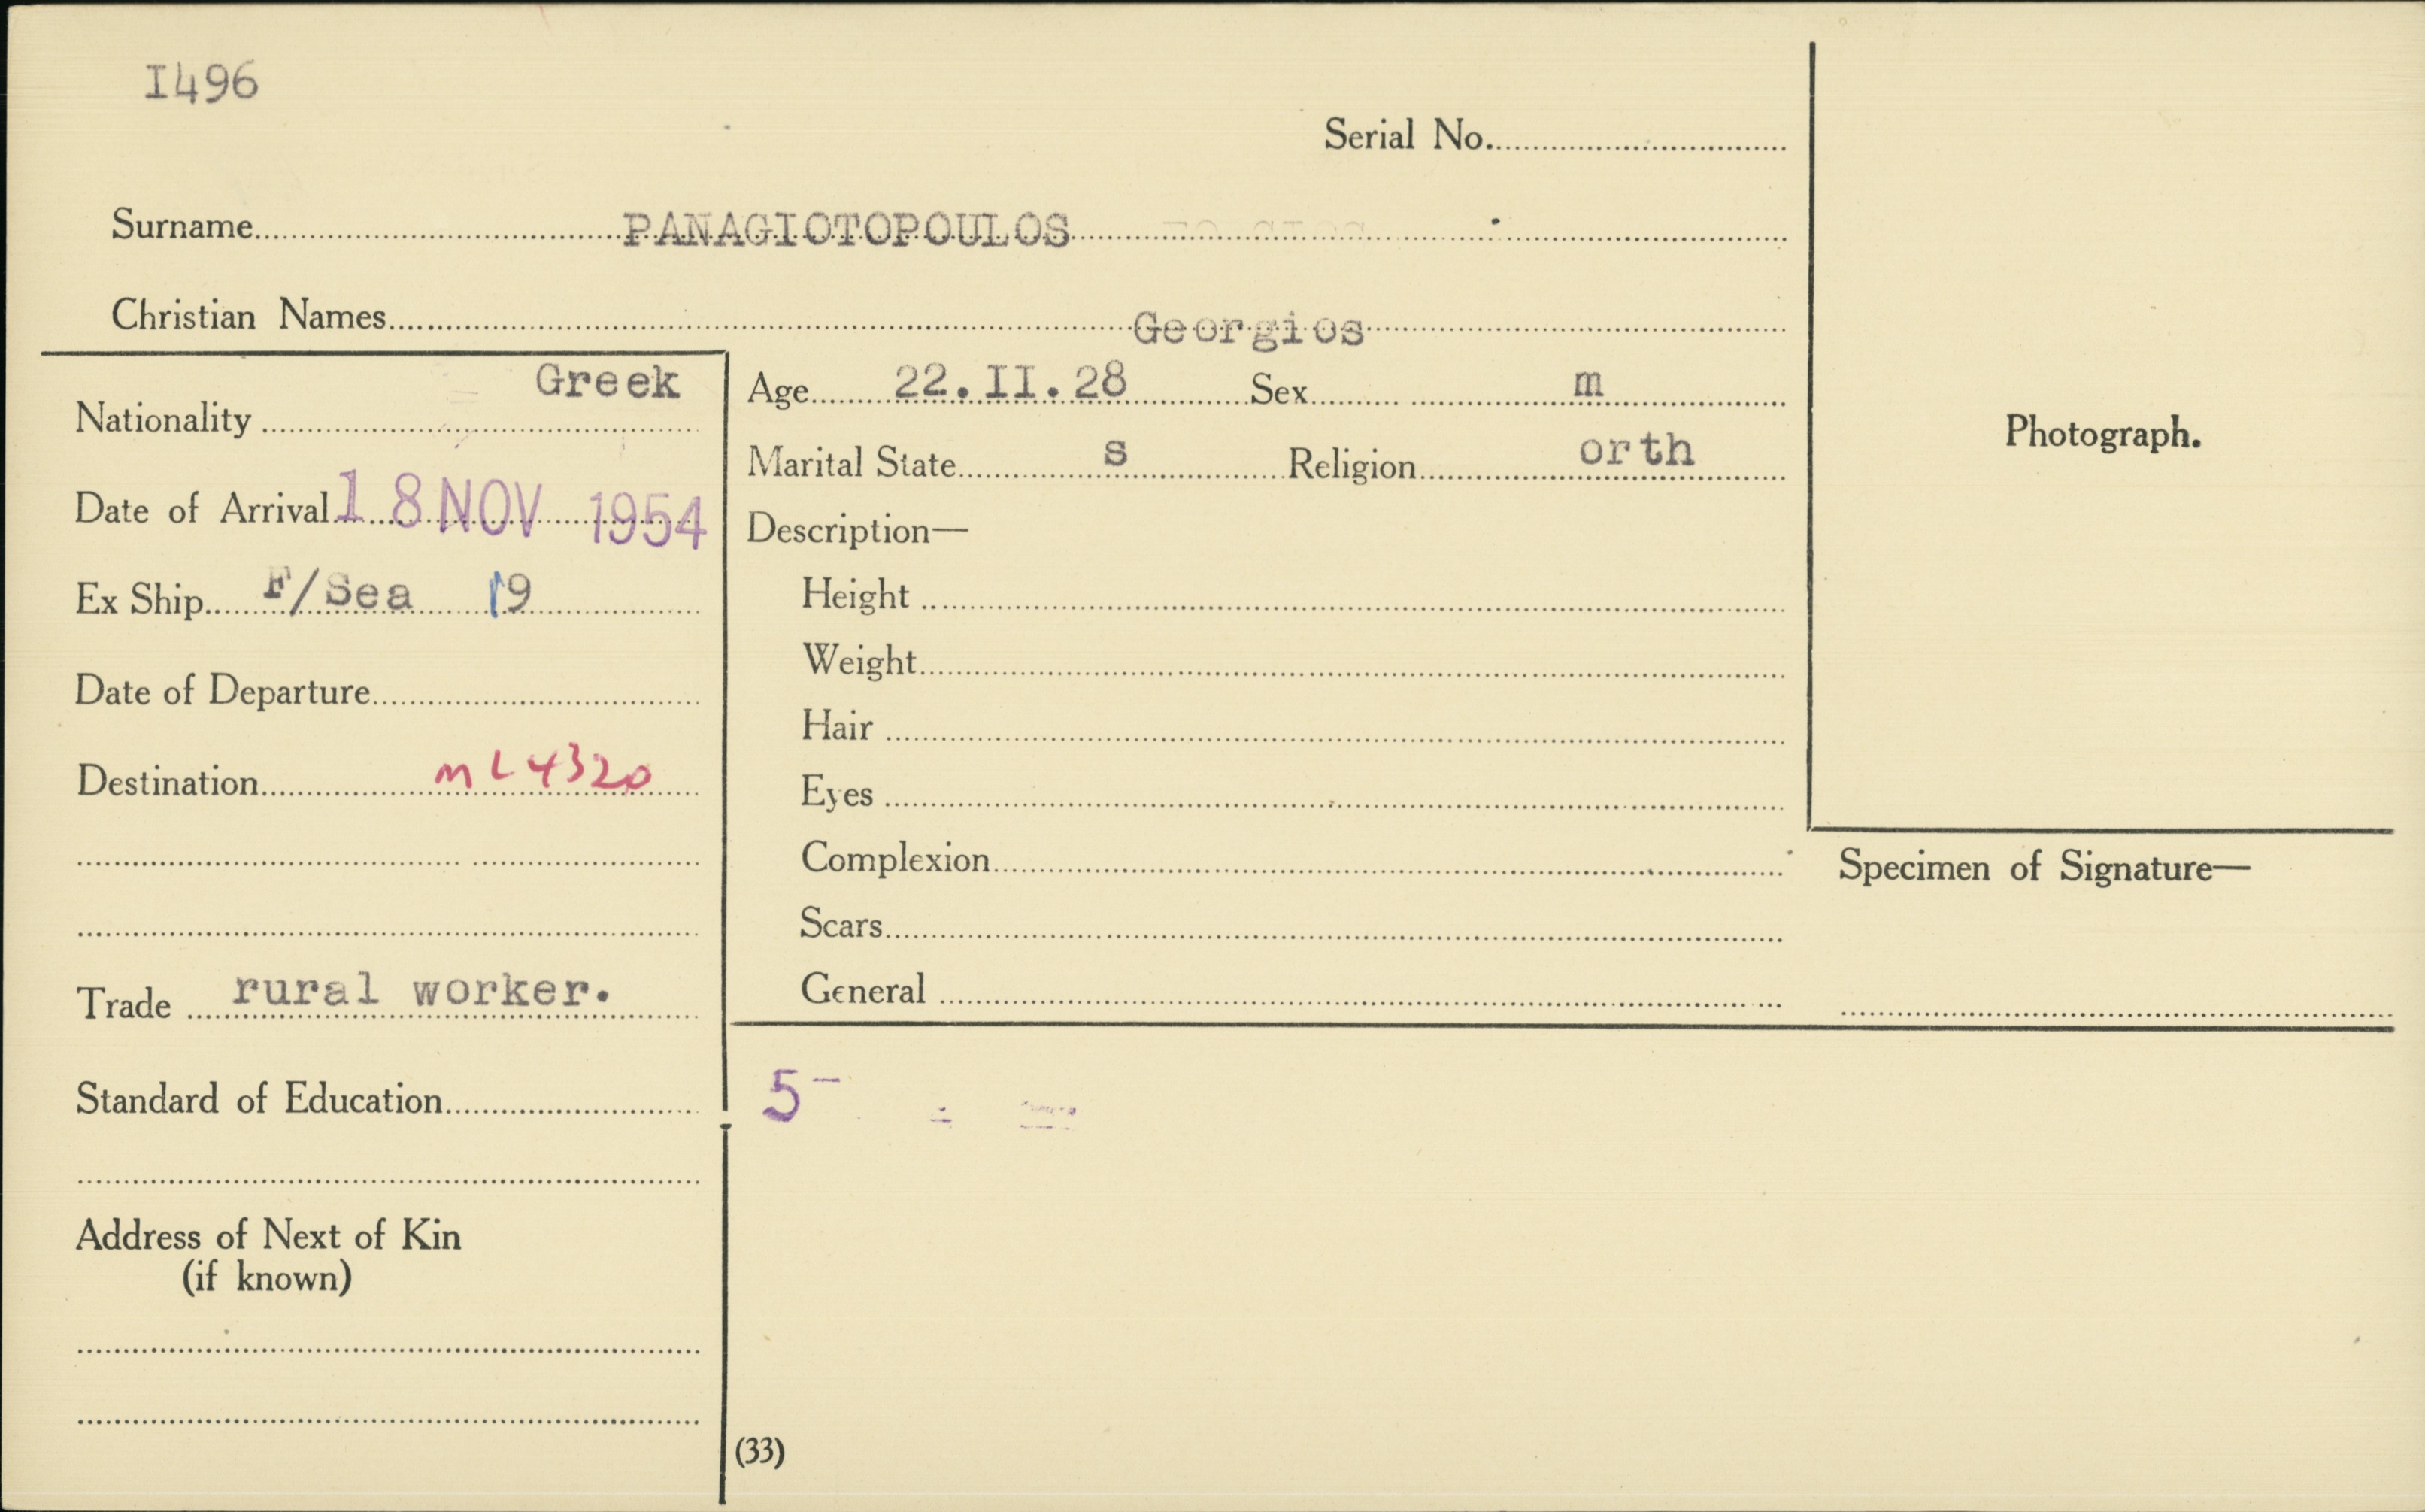 I496
Serial No.
Surname PANAGIOTOPOULOS
Christian Names Georgios
Nationality Greek
Date of Arrival 18 NOV 1954
Ex Ship F/Sea 19
Date of Departure
Destination ML4320
Trade rural worker.
Standard of Education
Address of Next of Kin
(if known)
Age 22.II.28 Sex m
Marital State s Religion orth
Description—
Height
Weight
Hair
Eyes
Complexion
Scars
General
Photograph.
Specimen of Signature—
5-
(33)